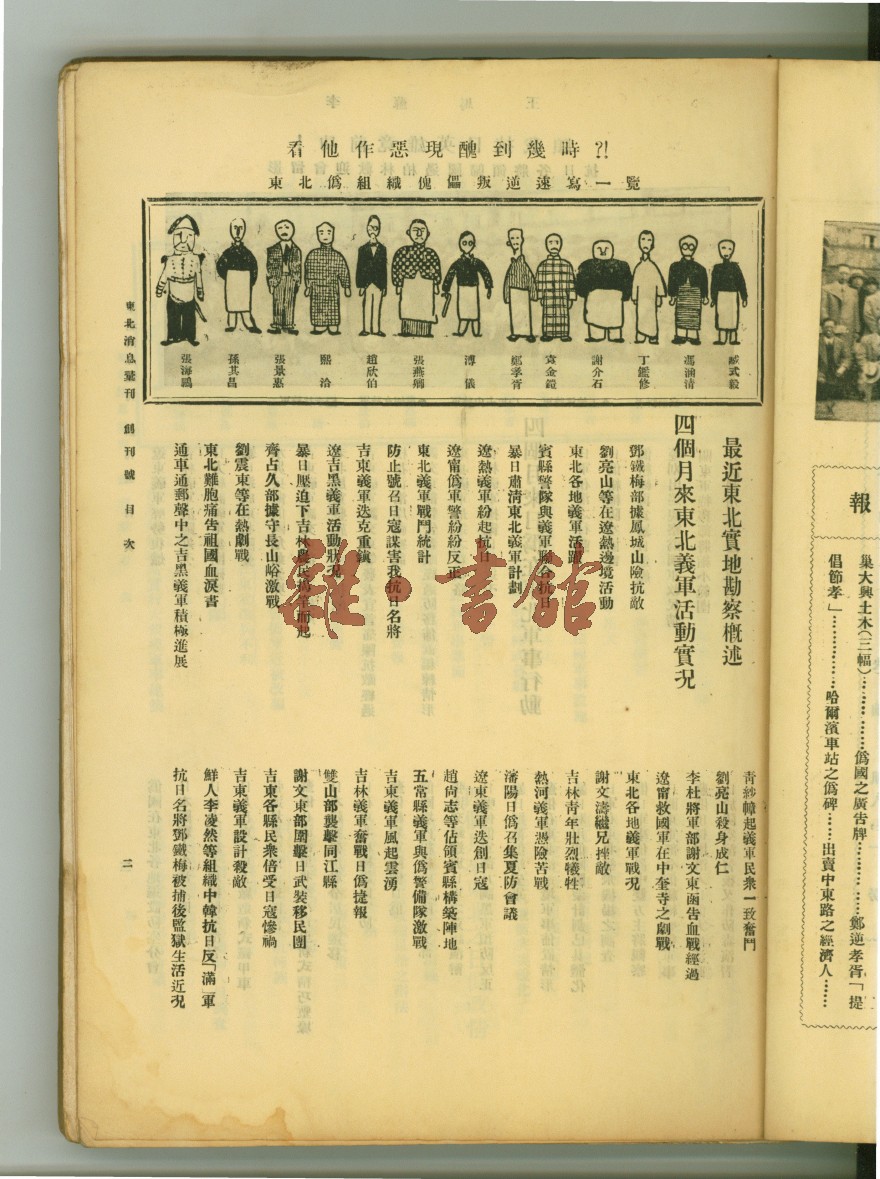 看他作惡現醜到幾時?!
東北僞組織傀儡叛逆速寫一覽
臧式毅
馮涵清
丁鑑修
謝介石
袁金鎧
鄭孝胥
溥儀
張燕卿
趙欣伯
熙洽
張景惠
孫其昌
張海鵬
最近東北實地勘察概述
四個月來東北義軍活動實況
鄧鐵梅部據鳳城山險抗敵
劉亮山等在遼熱邊境活動
東北各地義軍活躍
賓縣警隊與義軍聯合抗日
暴日肅清東北義軍計劃
遼熱義軍紛起抗日
遼甯僞軍警紛紛反正
東北義軍戰鬥統計
防止號召日寇謀害我抗日名將
吉東義軍迭克重鎭
遼吉黑義軍活動狀況
暴日壓迫下吉林農民揭竿而起
齊占久部據守長山峪激戰
劉震東等在熱劇戰
東北難胞痛吿祖國血淚書
通車通郵聲中之吉黑義軍積極進展
靑紗幛起義軍民衆一致奮鬥
劉亮山殺身成仁
李杜將軍部謝文東函吿血戰經過
遼甯救國軍在中奎寺之劇戰
東北各地義軍戰況
謝文濤繼兄挫敵
吉林靑年壯烈犧牲
熱河義軍憑險苦戰
瀋陽日僞召集夏防會議
遼東義軍迭創日寇
趙尙志等佔領賓縣構築陣地
五常縣義軍與僞警備隊激戰
吉東義軍風起雲湧
吉林義軍奮戰日僞捷報
雙山部襲擊同江縣
謝文東部圍擊日武裝移民團
吉東各縣民衆倍受日寇慘禍
吉東義軍設計殺敵
鮮人李凌然等組織中韓抗日反「滿」軍
抗日名將鄧鐵梅被捕後監獄生活近況
東北消息彙刊 創刊號 目次
二
報
巢大興土木(三幅)………………僞國之廣吿牌……………鄭逆孝胥「提
倡節孝」……………哈爾濱車站之僞碑……出賣中東路之經濟人……
雜·書館